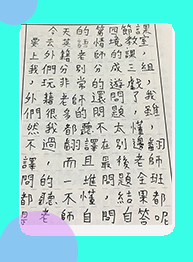 今天的第四節課
要去英語情境教室
上外籍老師的課，
我們分別分成三組
，玩非常的遊戲，
外籍老師還問了我
們很多的問題，雖
然我都聽不太懂
不過翻譯在別邊翻
譯，而且最後老師
問的一堆問題全班
都聽不懂，結果都
是老師自問自答呢